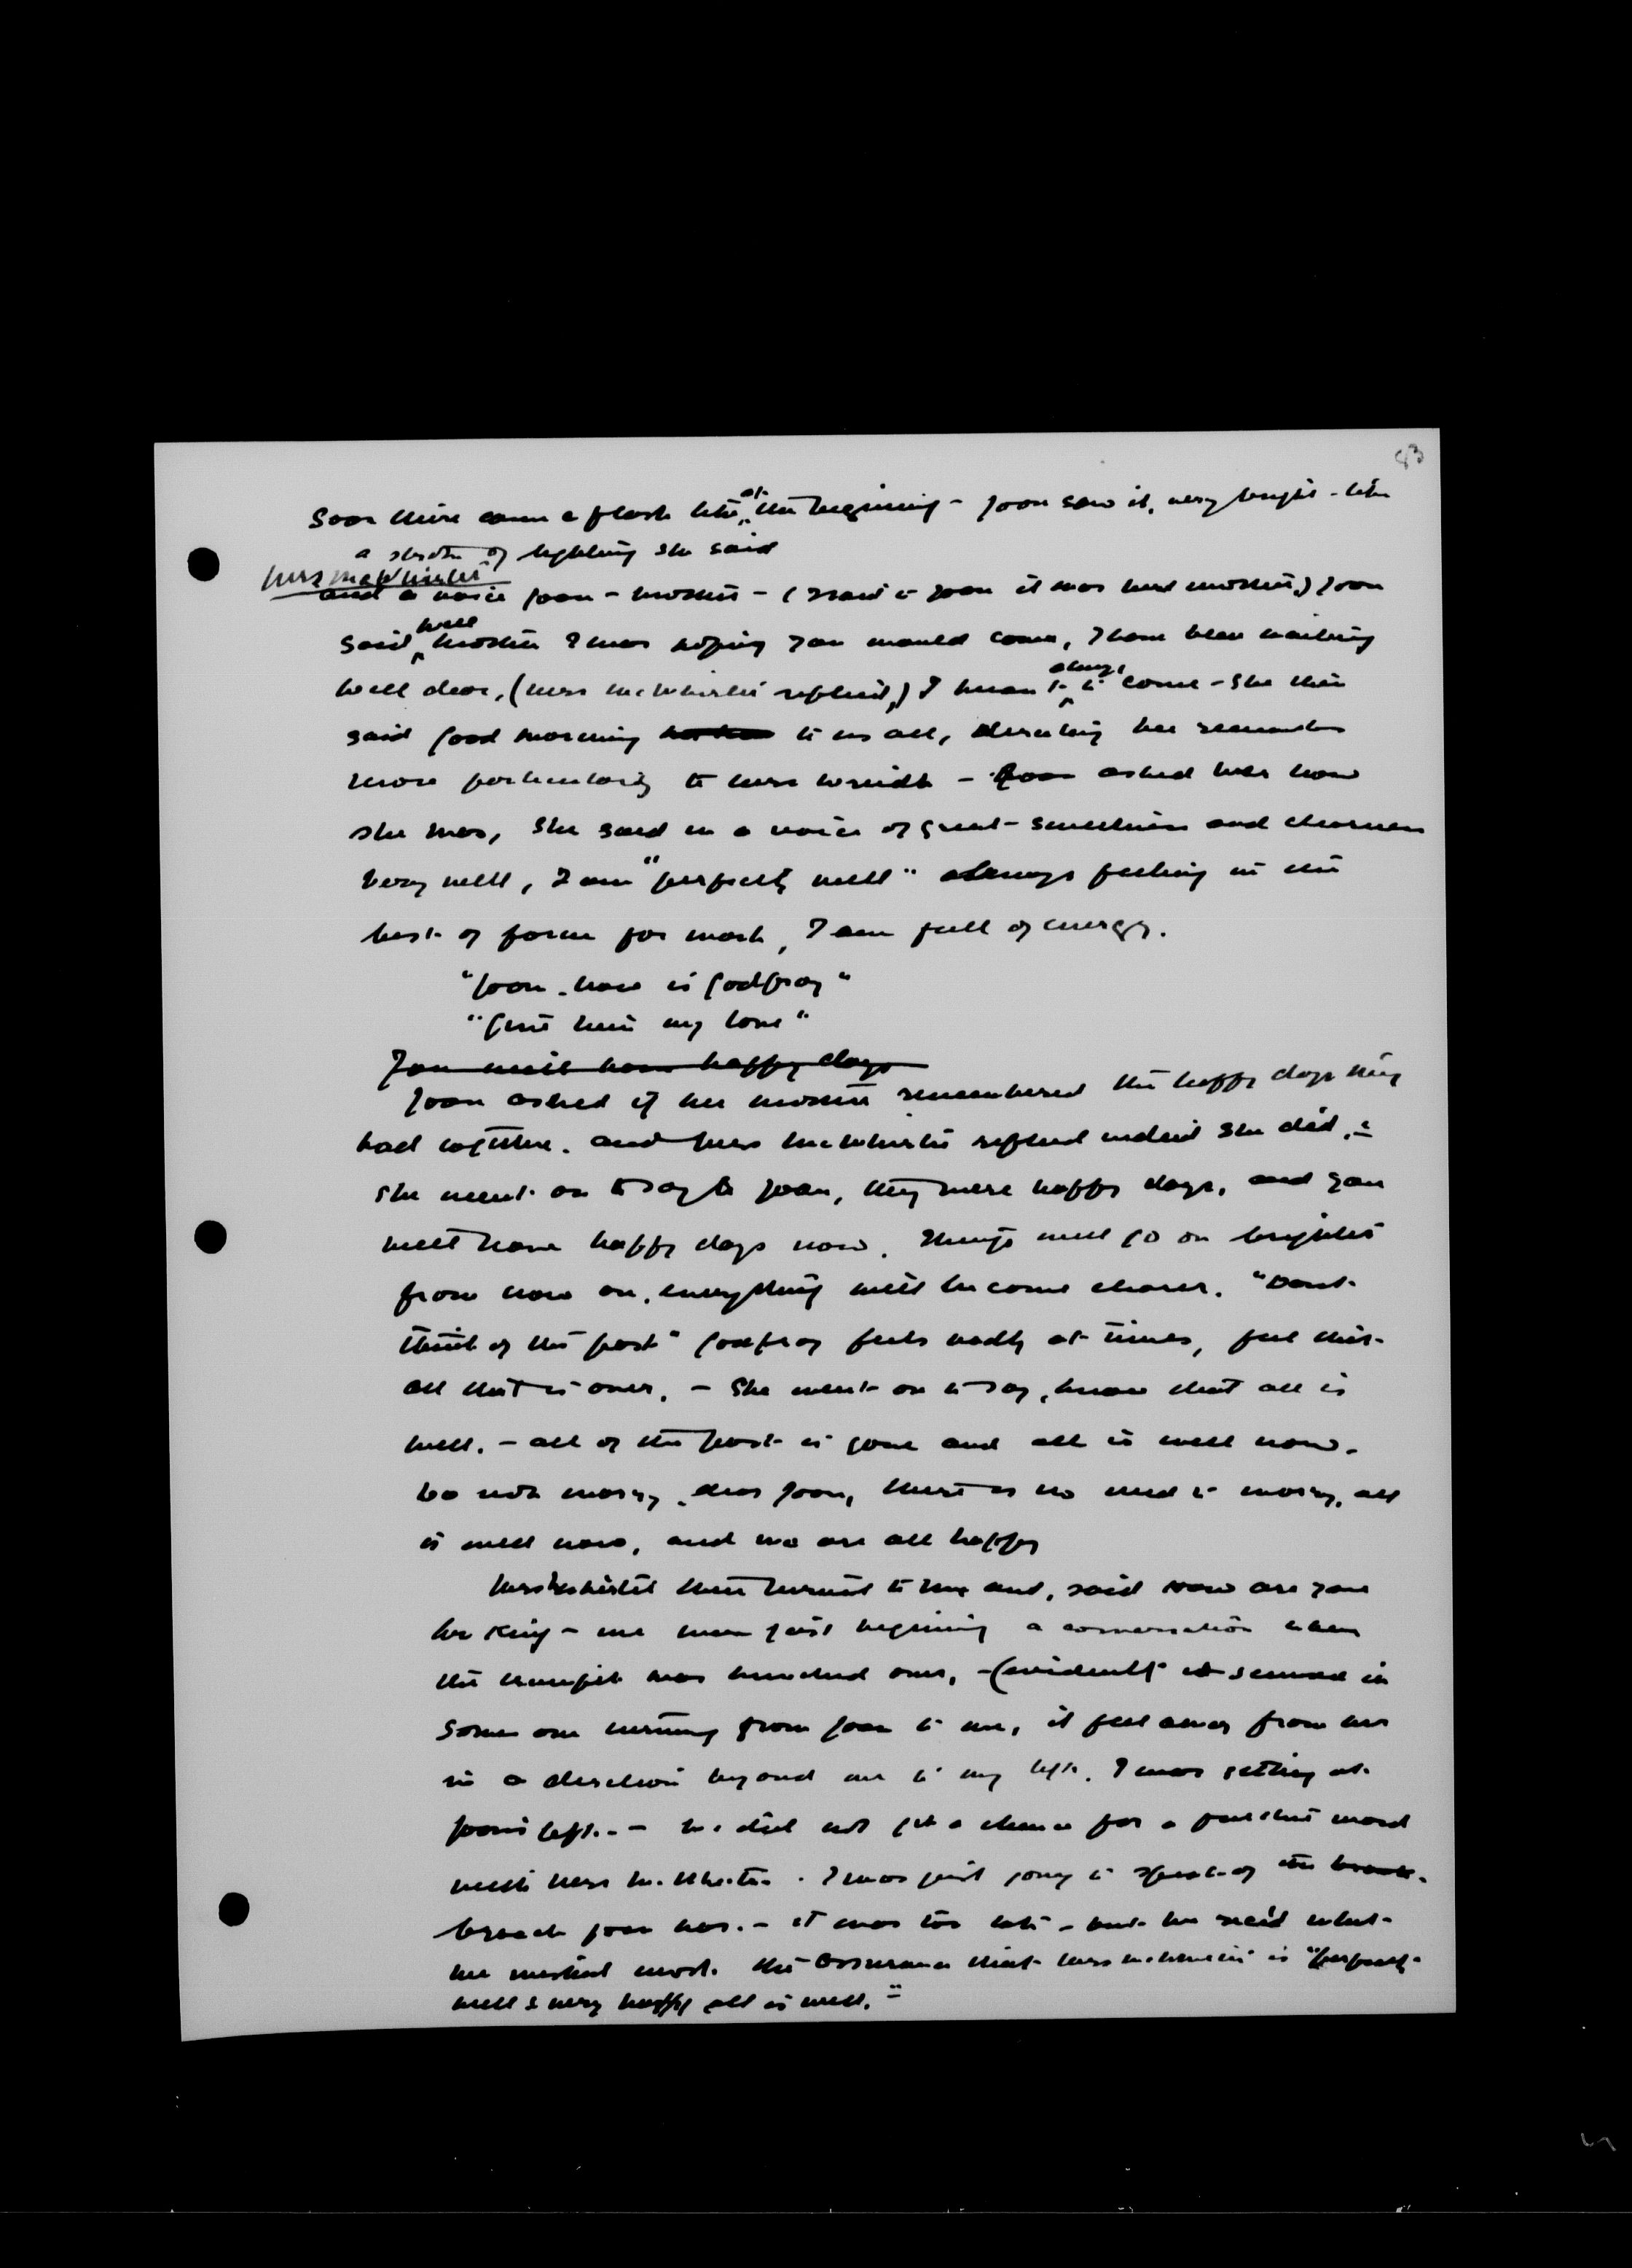 43
Soon there came a flash like at the beginning - Joan saw it, very bright - like
a streak of lightning she said
Mrs McWhirter
and a voice Joan - mother - (I said to Joan it was her mother) Joan
said well mother I was hoping you would come, I have been waiting
well dear, (Mrs McWhirter replied,) I mean to always come - she then
said good morning to us all, directing her remarks
more particularly to Mrs - Joan asked her how
she was, she said in a voice of great sweetness and clearness
very well, I am "perfectly well" always feeling in the
best of form for work, I am full of energy.
"Joan - how is Godfrey"
"Give him my love"
You will have happy days
Joan asked if her mother remembered the happy days they
had together. and Mrs McWhirter replied indeed she did.
She went on to say to Joan, they were happy days, and you
will have happy days now. Things will go on brighter
from now on, everything will become clearer. "Dont
think of the past" Godfrey feels badly at times, feel that
all that is over. - She went on to say, know that all is
well. - all of the past is gone and all is well now.
Do not worry, dear Joan, there is no need to worry, all
is well now, and we are all happy
Mrs McWhirter then turned to me and, said How are you
Mr King - we were just beginning a conversation when
the trumpet was over, - (evidently it seemed in
some one turning from Joan to me, it fell away from me
in a direction beyond me to my left. I was sitting at
Joan's left. - We did not get a chance for a further word
with Mrs McWhirter. I was just going to speak of the
Joan has. - it was too late - but he said what
we wanted most. the assurance that Mrs McWhirter is "perfectly
well & very happy all is well."